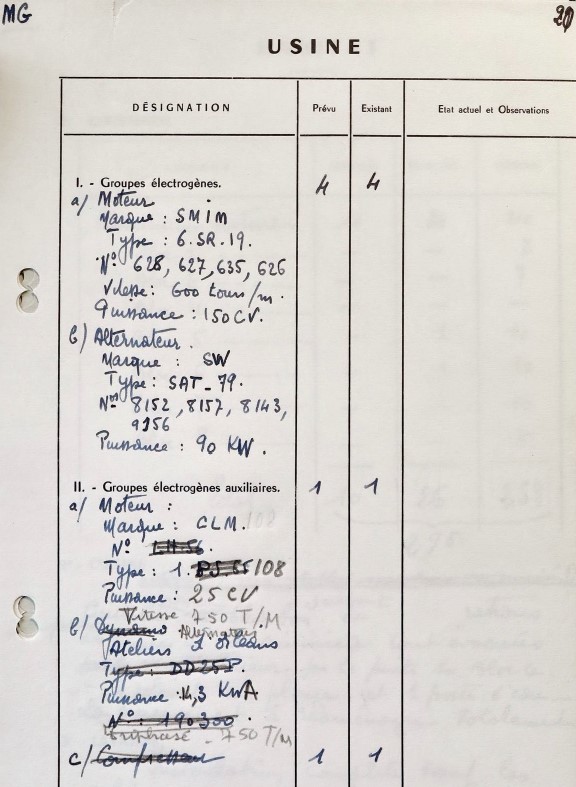 MG
20
USINE
DÉSIGNATION Prévu Existant Etat actuel et Observations
I. - Groupes électrogènes. 4 4
a/ Moteur
Marque : SMIM
Type : 6.SR.19.
N° 628, 627, 635, 626
Vitesse : 600 tours/m.
Puissance : 150 CV.
b/ Alternateur.
Marque : SW
Type : SAT_79.
Nos 8152, 8157, 8143,
9156
Puissance : 90 KW.
II. - Groupes électrogènes auxiliaires. 1 1
a/ Moteur :
Marque : CLM. 108
N° LH.56.
Type : 1. PJ 65/108
Puissance : 25 CV
Vitesse 750 T/M
b/ Dynamo Alternateur
Ateliers d'Orléans
Type : DD25P.
Puissance 14,3 KWA
N° : 190300.
Triphasé - 750 T/M
c/ Compresseur 1 1